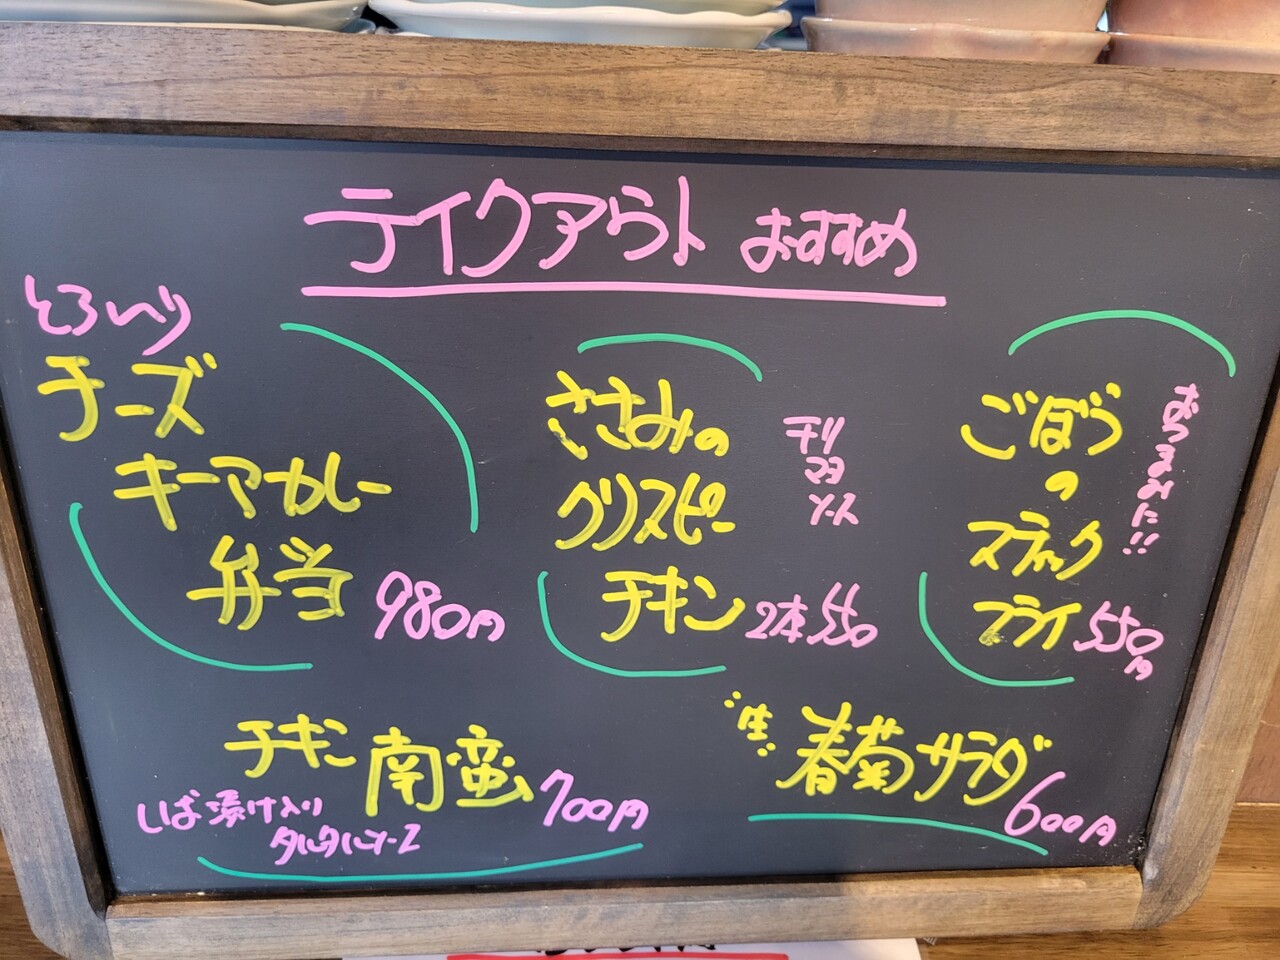 テイクアウト おすすめ
とろ〜り
チーズ
キーマカレー
弁当 980円
ささみの
クリスピー
チキン 2本 550
チリ
マヨ
ソース
ごぼう
の
スティック
フライ 550円
おつまみに!!
チキン南蛮 700円
しば漬け入り
タルタルソース
"生"
春菊サラダ 600円